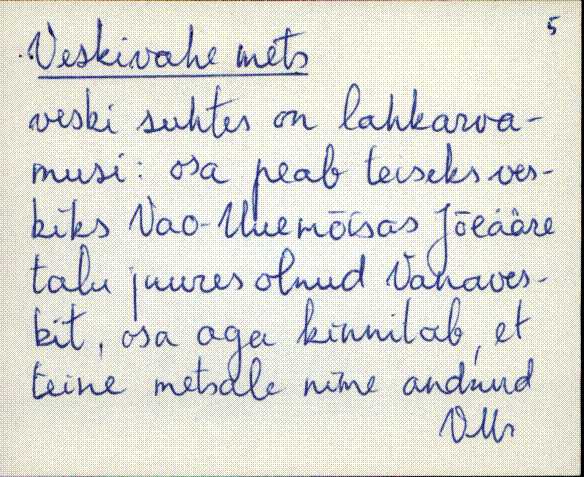 5
Veskivahe mets
veski suhtes on lahkarva-
musi: osa peab teiseks ves-
kiks Vao-Uuemõisas Jõeääre
talu juures olnud Vanaves-
kit, osa aga kinnitab, et
teine metsale nime andnud